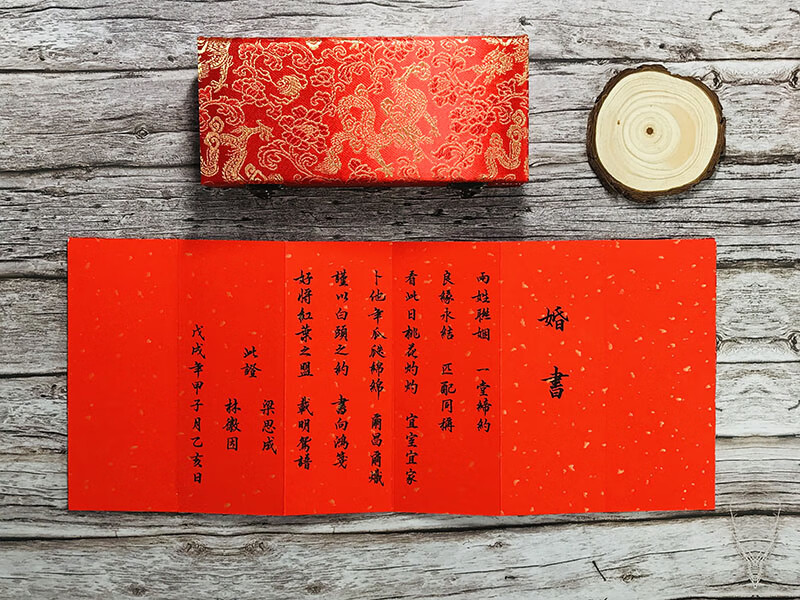 婚 書
兩姓聯姻 一堂締約
良緣永結 匹配同稱
看此日桃花灼灼 宜室宜家
卜他年瓜瓞綿綿 爾昌爾熾
謹以白頭之約 書向鴻箋
好將紅葉之盟 載明鴛譜
梁思成
此證
林徽因
戊戌年甲子月乙亥日